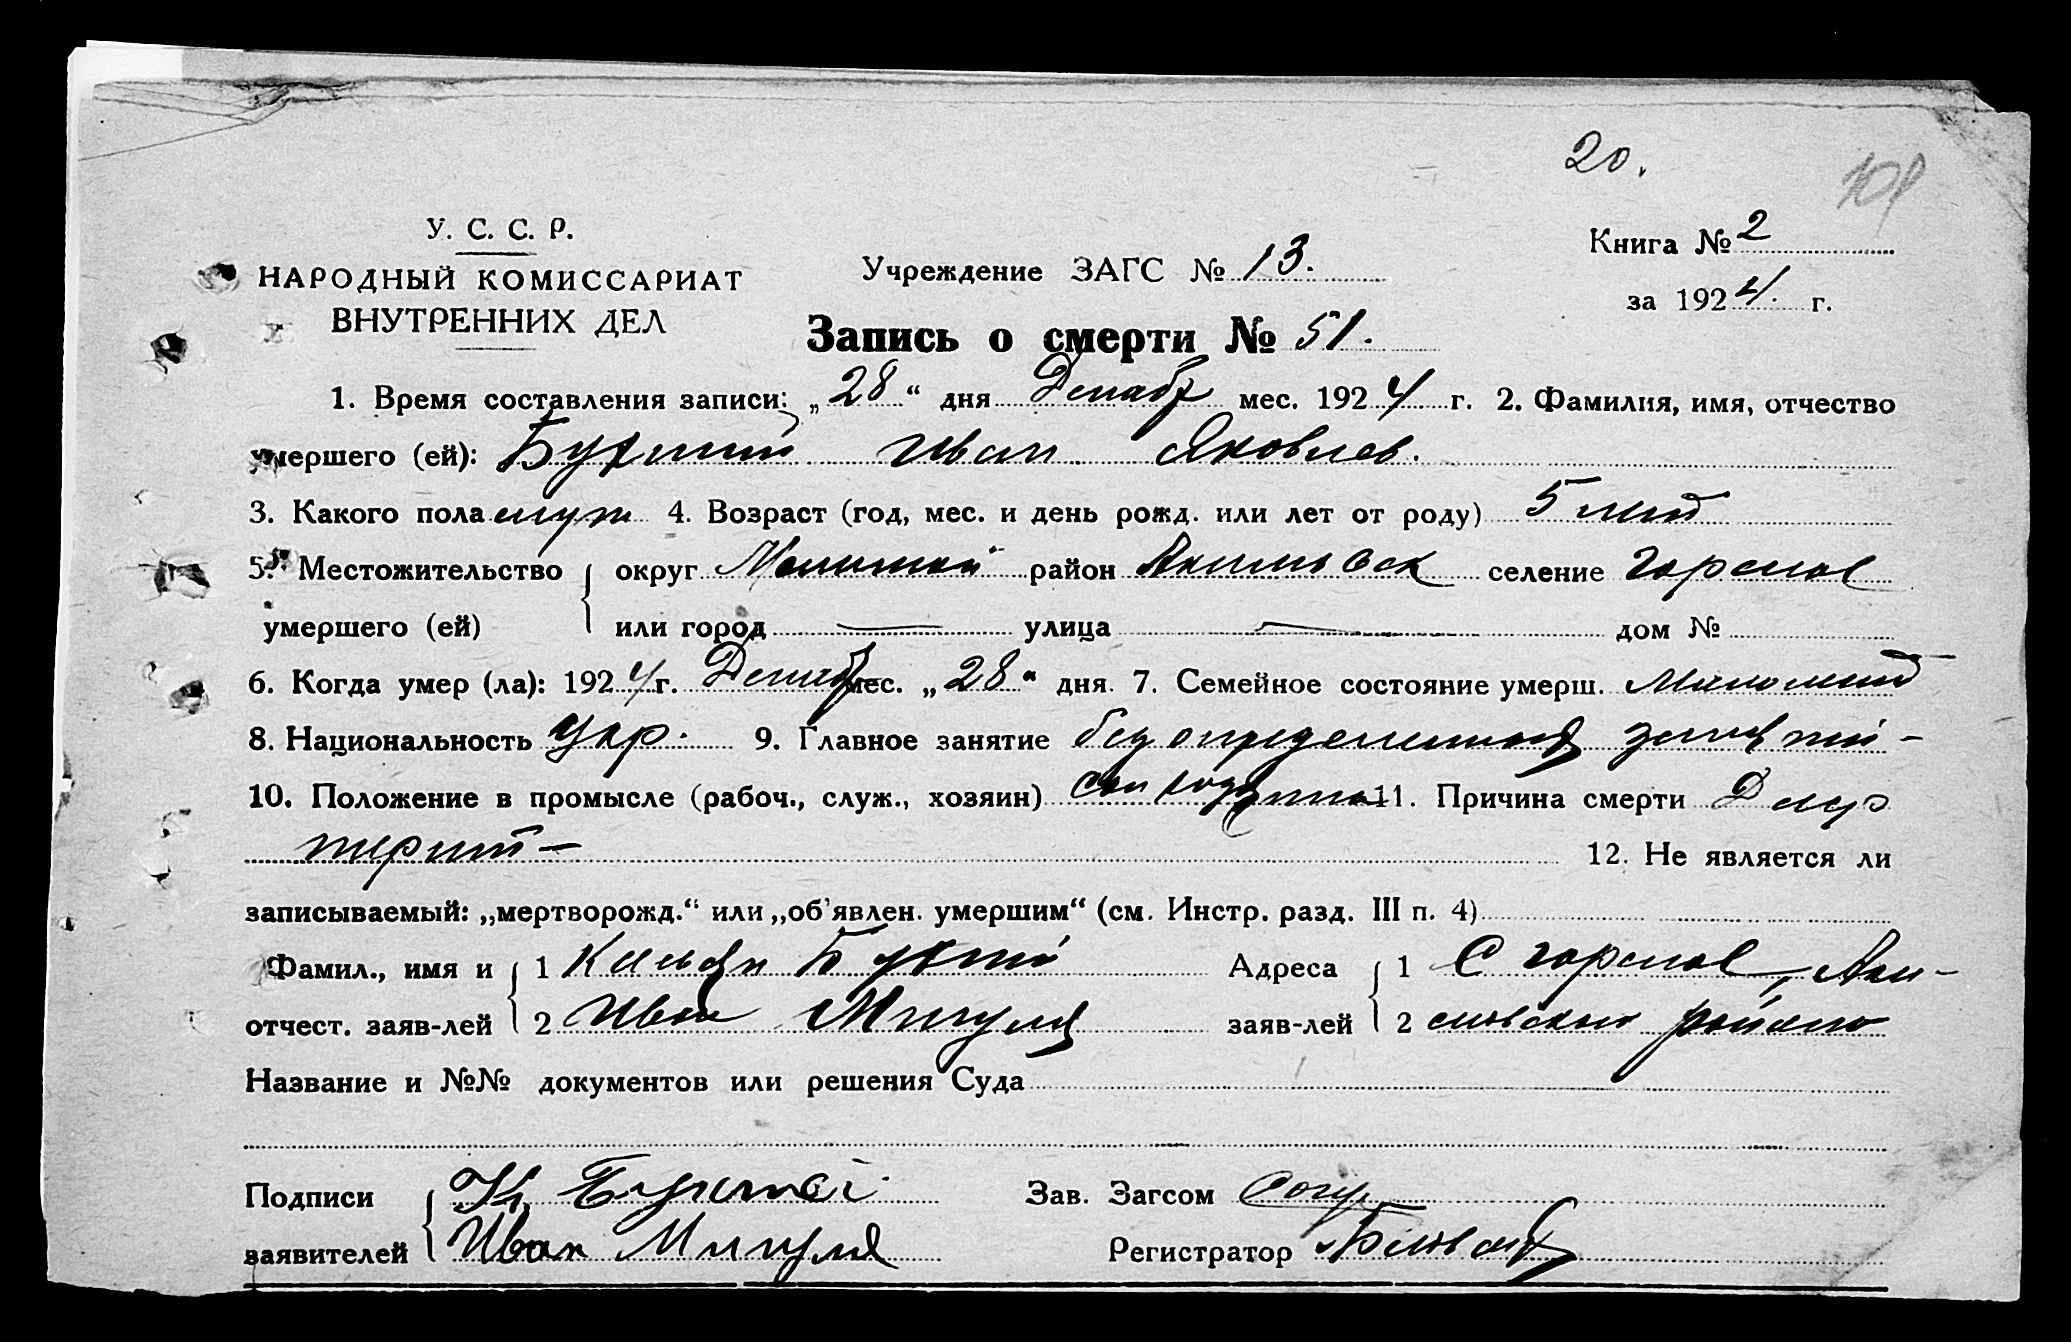 20.
У. С. С. Р.
НАРОДНЫЙ КОМИССАРИАТ
ВНУТРЕННИХ ДЕЛ
Учреждение ЗАГС № 13.
Книга № 2
за 1924. г.
Запись о смерти № 51.
1. Время составления записи: „28“ дня Декабр мес. 1924 г. 2. Фамилия, имя, отчество
умершего (ей): Иван Яковлев.
3. Какого пола муж 4. Возраст (год, мес. и день рожд. или лет от роду) 5 лет
5. Местожительство округ район селение Горелое
умершего (ей) или город — улица — дом №
6. Когда умер (ла): 1924 г. Декабр мес. „28“ дня. 7. Семейное состояние умерш. Малолет
8. Национальность Укр. 9. Главное занятие без определенных занятий -
10. Положение в промысле (рабоч., служ., хозяин) 11. Причина смерти
12. Не является ли
записываемый: „мертворожд.“ или „об'явлен. умершим“ (см. Инстр. разд. III п. 4)
Фамил., имя и 1 Адреса 1 С Горелое, Аки-
отчест. заяв-лей 2 Иван Мигуля заяв-лей 2 мовского района
Название и №№ документов или решения Суда
Подписи К. Зав. Загсом
заявителей Иван Мигуля Регистратор